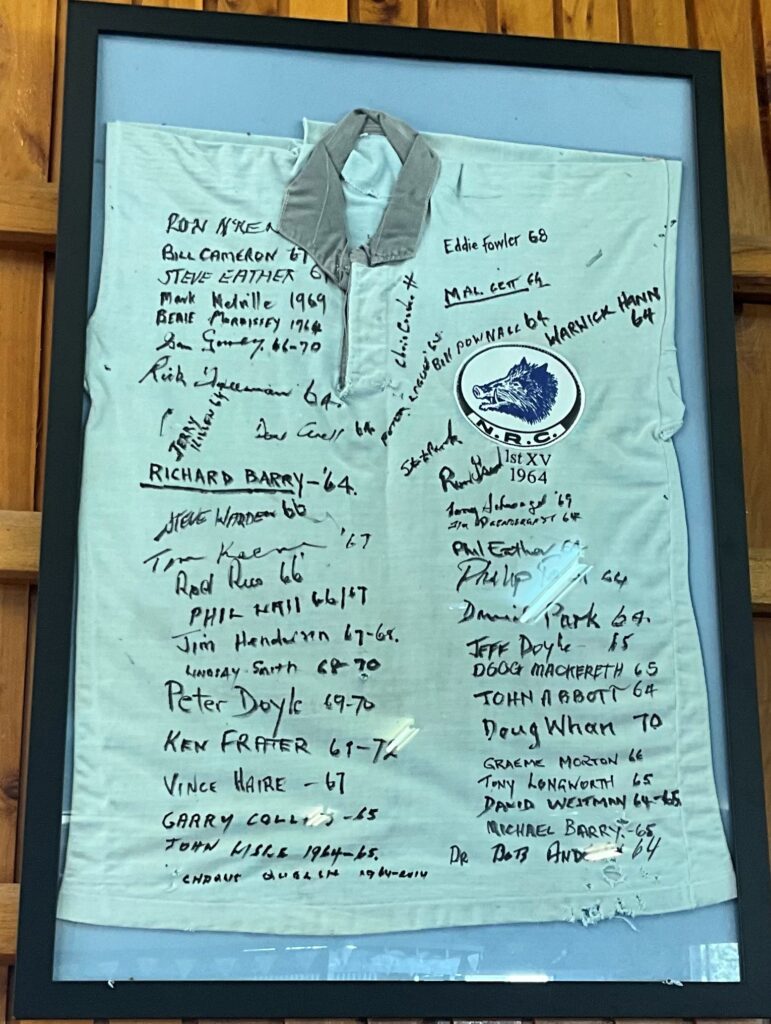 RON
BILL CAMERON 67
STEVE EATHER
Mark Melville 1969
BERIE MORRISSEY 1964
66-70
Rick 64
JERRY KILLEN 64
64
RICHARD BARRY-'64.
STEVE WARDEN 66
Tom Keene '67
Rod 66
PHIL NALL 66/67
Jim Henderson 67-68.
LINDSAY Smith 68-70
Peter Doyle 69-70
KEN FRATER 69-72
VINCE HAIRE -67
GARRY COLLINS -65
JOHN LISLE 1964-65.
1964-2014
Chris
PETER
Eddie Fowler 68
MAL. CETT 64
BILL DOWNALL 64
WARWICK HANN 64
N.R.C.
1st XV
1964
'69
64
Phil Eather 64
Philip 64
David Park 64.
JEFF Doyle 65
DOUG MACKERETH 65
JOHN ABBOTT 64
Doug Whan 70
GRAEME MORTON 66
TONY LONGWORTH 65
DAVID WESTMAN 64-65
MICHAEL BARRY.-65
DR BOB 64